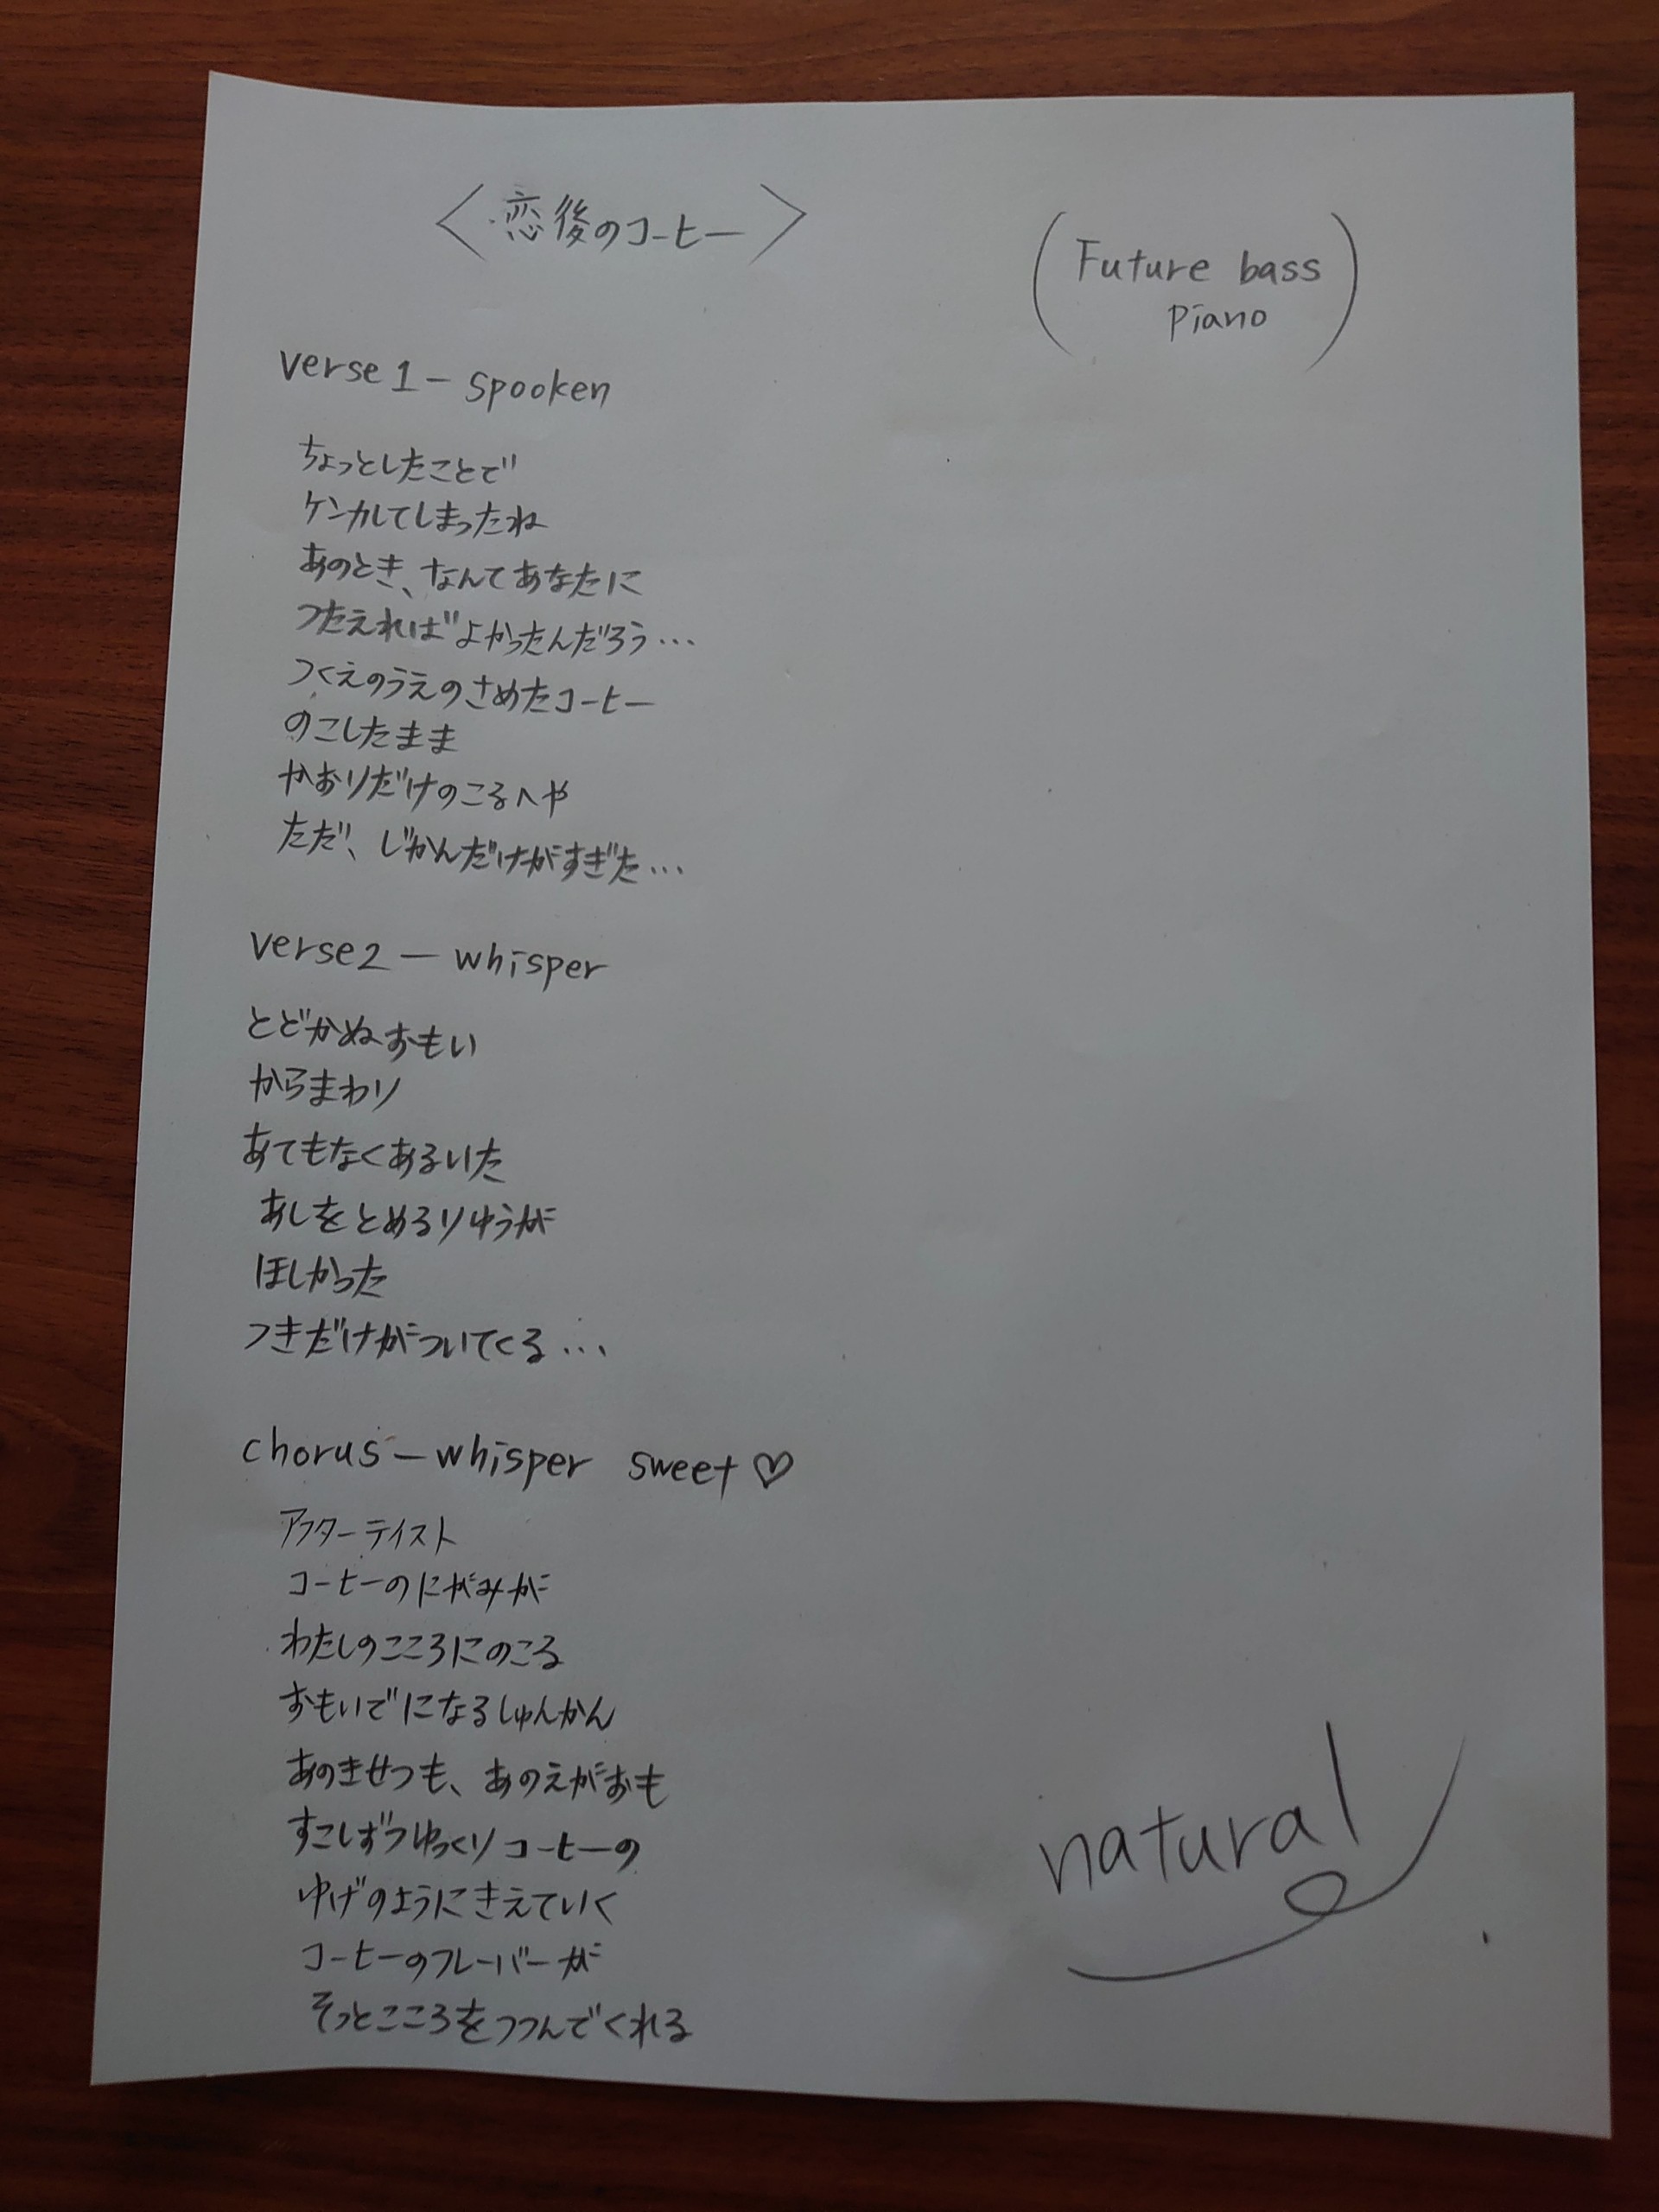 〈恋後のコーヒー〉
(Future bass
piano)
verse1－spooken
ちょっとしたことで
ケンカしてしまったね
あのとき、なんてあなたに
つたえればよかったんだろう…
つくえのうえのさめたコーヒー
のこしたまま
かおりだけのこるへや
ただ、じかんだけがすぎた…
verse2－whisper
とどかぬおもい
からまわり
あてもなくあるいた
あしをとめるりゆうが
ほしかった
つきだけがついてくる…
chorus－whisper sweet♡
アフターテイスト
コーヒーのにがみが
わたしのこころにのこる
おもいでになるしゅんかん
あのきせつも、あのえがおも
すこしずつゆっくりコーヒーの
ゆげのようにきえていく
コーヒーのフレーバーが
そっとこころをつつんでくれる
natural